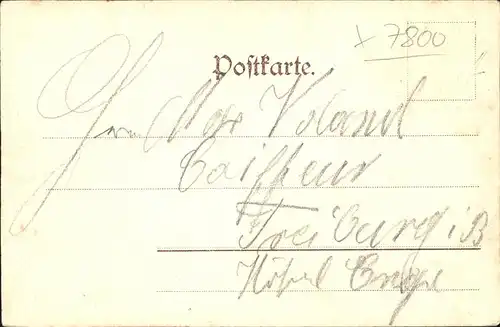 x 7800
Postkarte.
Herrn Max Voland
Coiffeur
Freiburg i. B
Hôtel Engel